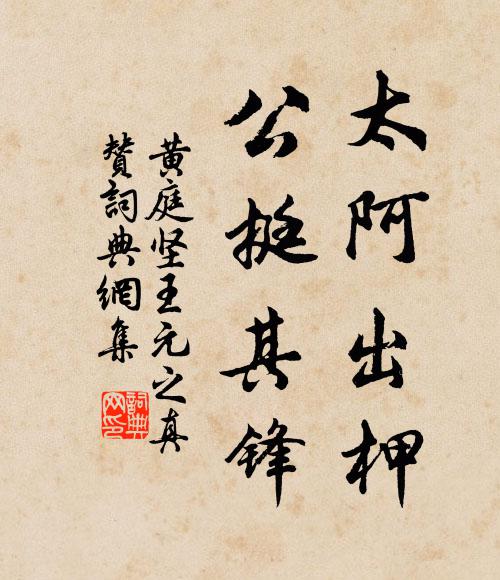 太阿出柙
公挺其锋
黄庭坚王元之真
赞詞典網集
詞典网印